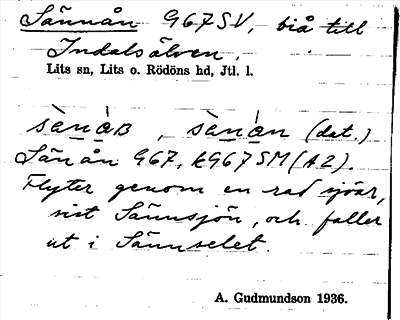 Sännån G67SV, biå till
Indalsälven.
Lits sn, Lits o. Rödöns hd, Jtl. l.
sὲnàʙ, sὲnàn (dat.)
Sän ån G67, kG67SM (A2).
Flyter genom en rad sjöar,
sist Sännsjön, och faller
ut i Sännselet.
A. Gudmundson 1936.